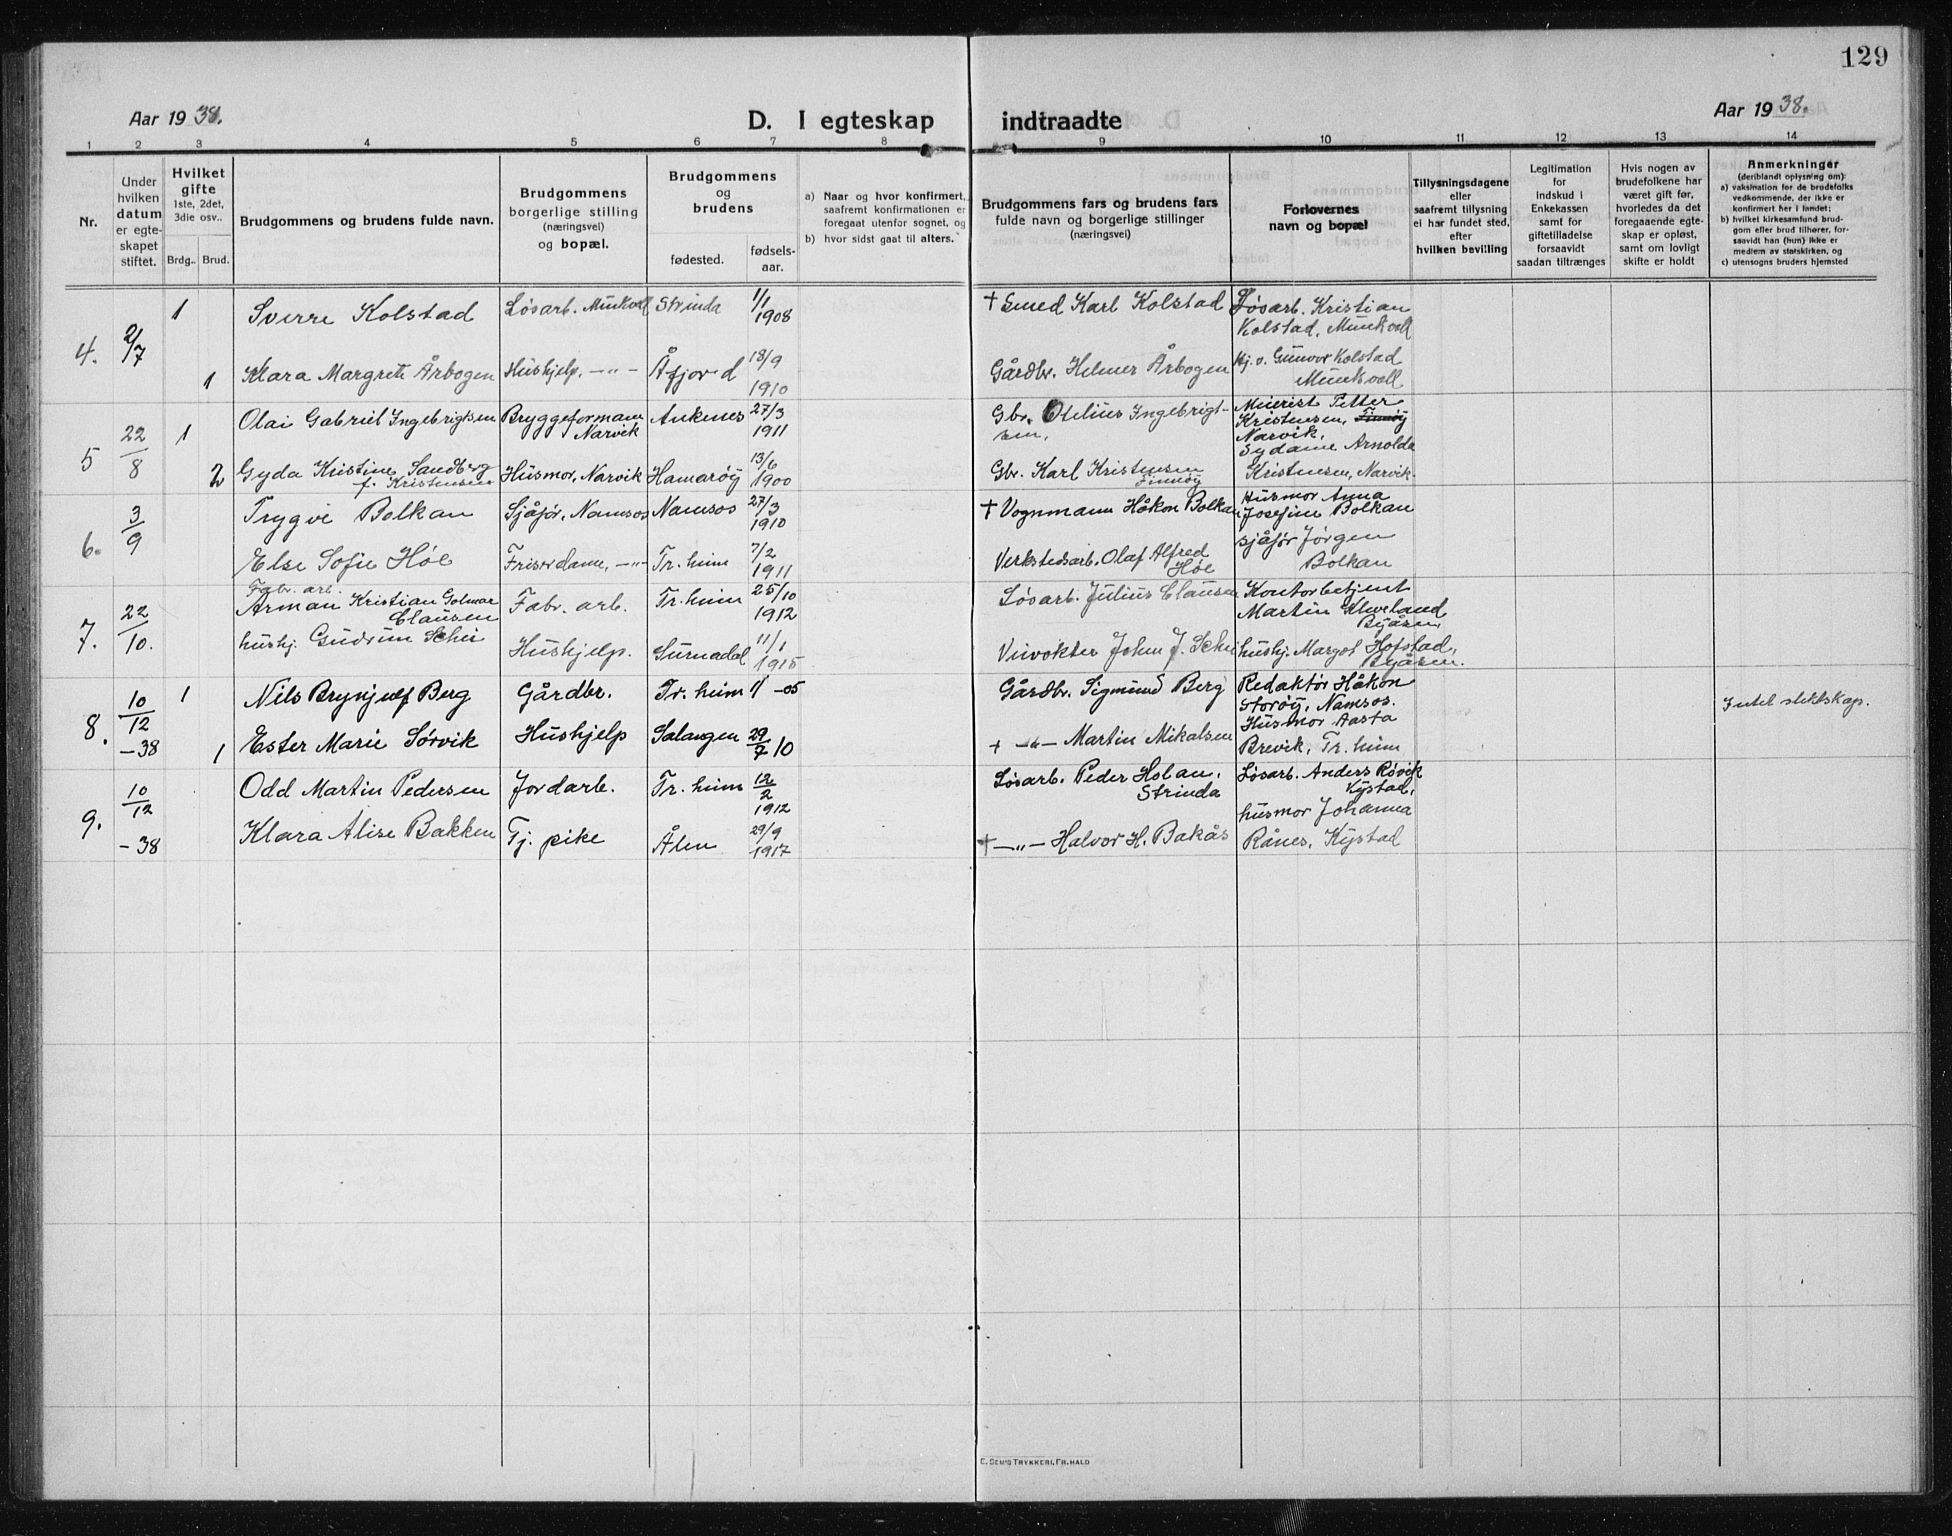 129
Aar 1938. D. I egteskap indtraadte Aar 1938.
1 2 3 4 5 6 7 8 9 10 11 12 13 14
Nr.
Under
hvilken
datum
er egte-
skapet
stiftet.
Hvilket
gifte
1ste, 2det,
3die osv..
Brdg.. Brud.
Brudgommens og brudens fulde navn.
Brudgommens
borgerlige stilling
(næringsvei)
og bopæl.
Brudgommens
og
brudens
fødested.
fødsels-
aar.
a) Naar og hvor konfirmert,
saafremt konfirmationen er
foregaat utenfor sognet, og
b) hvor sidst gaat til alters.
Brudgommens fars og brudens fars
fulde navn og borgerlige stillinger
(næringsvei)
Forlovernes
navn og bopæl
Tillysningsdagene
eller
saafremt tillysning
ei har fundet sted,
efter
hvilken bevilling
Legitimation
for
indskud i
Enkekassen
samt for
giftetilladelse
forsaavidt
saadan tiltrænges
Hvis nogen av
brudefolkene har
været gift før,
hvorledes da det
foregaaende egte-
skap er opløst,
samt om lovligt
skifte er holdt
Anmerkninger
(deriblandt oplysning om):
a) vaksination for de brudefolks
vedkommende, der ikke er
konfirmert her i landet;
b) hvilket kirkesamfund brud-
gom eller brud tilhører, for-
saavidt han (hun) ikke er
medlem av statskirken, og
c) utensogns bruders hjemsted
4. 2/7
1 Sverre Kolstad Løsarb. Munkvoll Strinda 1/1 1908 † Smed Karl Kolstad Løsarb. Kristian
Kolstad, Munkvoll
1 Klara Margrete Årbogen Hushjelp, -"- Åfjord 18/9 1910 Gårdbr. Helmer Årbogen Hj. v. Gunvor Kolstad
Munkvoll
5 22/8
1 Olai Gabriel Ingebrigtsen Bryggeformann Narvik Ankenes 27/3 1911 Gbr. Otelius Ingebrigt-
sen, Meierist Petter
Kristensen, Finnøy
Narvik,
2 Gyda Kristine Sandberg f. Kristensen Husmor, Narvik Hamarøy 13/6 1900 Gbr. Karl Kristensen
Finnøy Sydame Arnolda
Kristensen, Narvik.
6. 3/9
Trygve Bolkan Sjåfør, Namsos Namsos 27/3 1910 † Vognmann Håkon Bolkan Husmor Anna
Josefine Bolkan
Else Sofie Høe Frisørdame, -"- Tr. heim 7/2 1911 Verkstedsarb. Olaf Alfred
Høe sjåfør Jørgen
Bolkan
7. 22/10.
Fabr. arb.
Arman Kristian Golmar
Clausen Fabr. arb. Tr. heim 25/10 1912 Løsarb. Julius Clausen Kontorbetjent
Martin Kleveland
Byåsen,
hushj. Gudrun Schei Hushjelp. Surnadal 11/1 1915 John J. Schei hushj. Margot Hofstad,
Byåsen.
8. 10/12 -38
1 Nils Brynjulf Berg Gårdbr. Tr. heim 1/ -05 Gårdbr. Sigmund Berg Redaktør Håkon
Storøy, Namsos. Intet slektskap.
1 Ester Marie Sørvik Hushjelp Salangen 29/7 10 + -"- Martin Mikalsen Husmor Aasta
Brevik, Tr. heim
9. 10/12 -38
Odd Martin Pedersen Jordarb. Tr. heim 12/2 1912 Løsarb. Peder Holan,
Strinda Løsarb. Anders Røvik
Kystad,
Klara Alise Bakken Tj. pike Ålen 29/9 1917 † -"- Halvor H. Bakås husmor Johanna
Rånes, Kystad
E. SEM'S TRYKKERI, FR.HALD